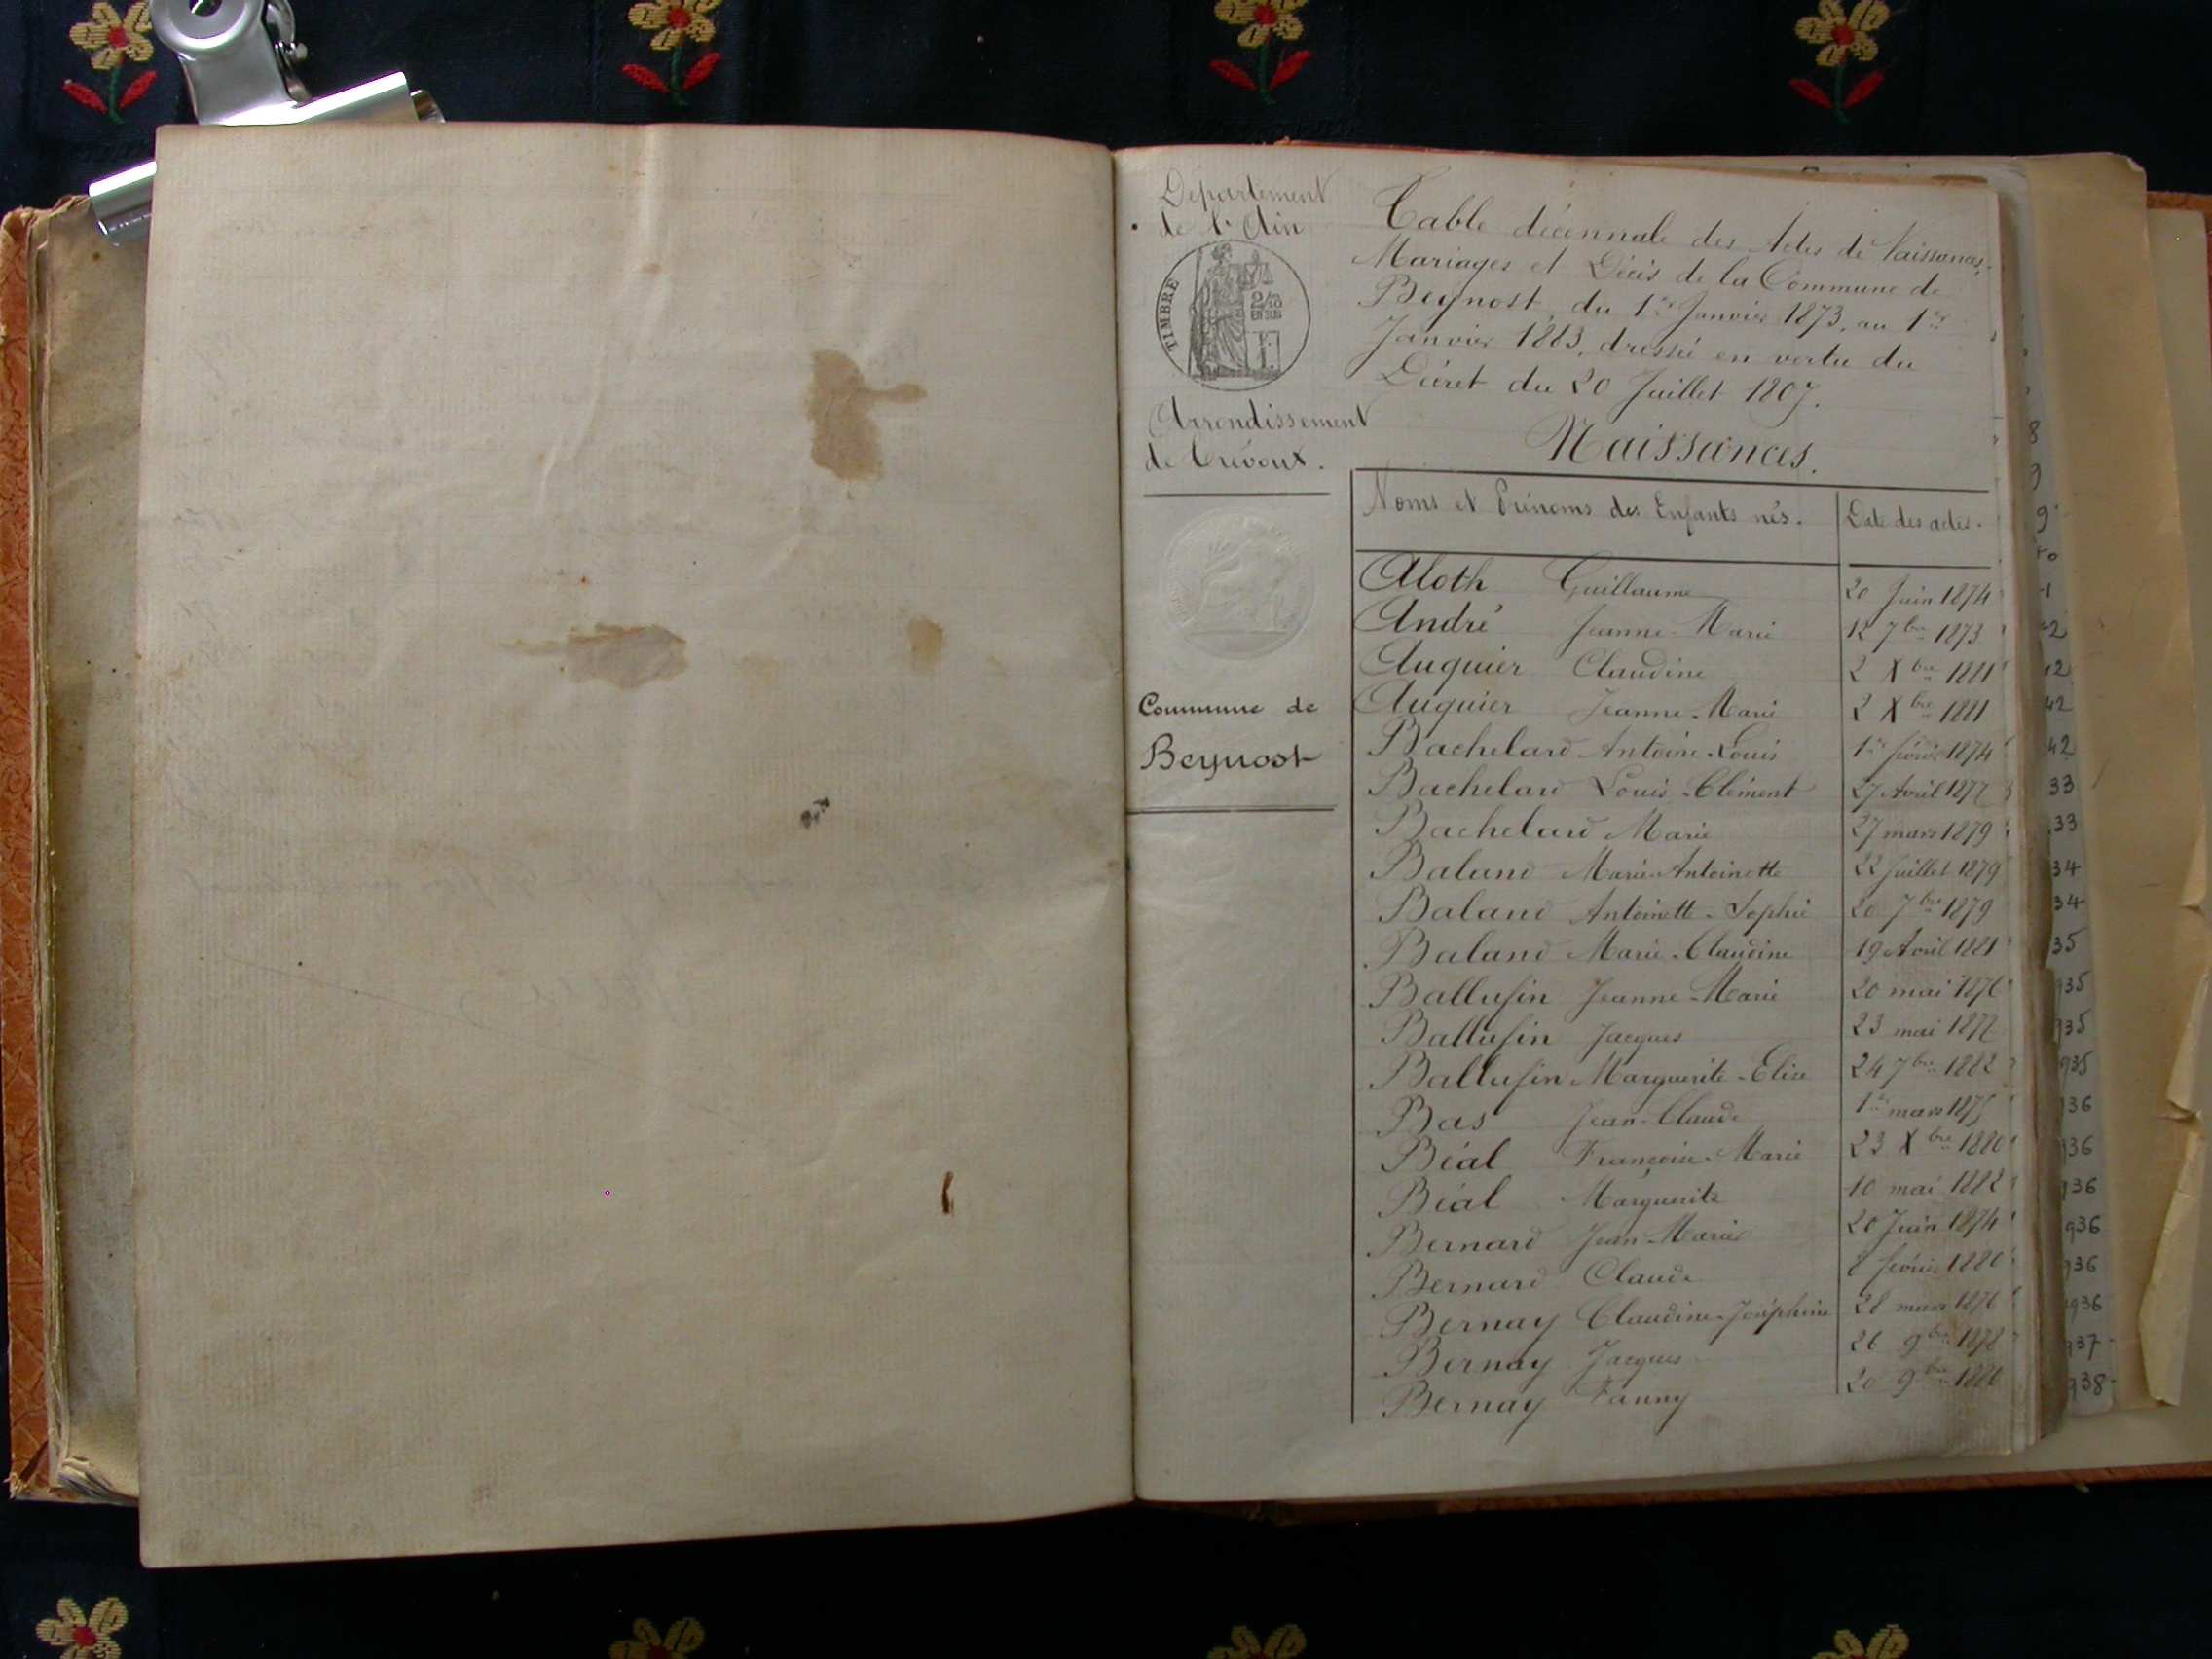 Département
de l'Ain
TIMBRE
2/10
EN SUS
Arrondissement
de Trévoux.
Commune de
Beynost
Table décennale des Actes de Naissances,
Mariages et Décès de la Commune de
Beynost, du 1er Janvier 1873, au 1er
Janvier 1883, dressée en vertu du
Décret du 20 Juillet 1807.
Naissances.
Noms et Prénoms des Enfants nés. Date des actes.
Aloth Guillaume 20 Juin 1874
André Jeanne-Marie 12 7bre 1873
Auquier Claudine 2 Xbre 1881
Auquier Jeanne-Marie 2 Xbre 1881
Bachelard Antoine-Louis 1er février 1874
Bachelard Louis-Clément 27 Avril 1877
Bachelard Marie 27 mars 1879
Baland Marie-Antoinette 22 Juillet 1879
Baland Antoinette-Sophie 20 7bre 1879
Baland Marie-Claudine 19 Avril 1881
Ballufin Jeanne-Marie 20 mai 1876
Ballufin Jacques 23 mai 1877
Ballufin Marguerite-Elise 24 7bre 1882
Bas Jean-Claude 1er mars 1875
Béal Françoise-Marie 23 Xbre 1880
Béal Marguerite 10 mai 1882
Bernard Jean-Marie 20 Juin 1874
Bernard Claude 8 février 1880
Bernay Claudine-Joséphine 28 mars 1876
Bernay Jacques 26 9bre 1878
Bernay Fanny 20 9bre 1880